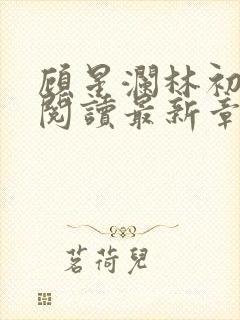 顧星瀾林初
閱讀最新章
茗荷兒